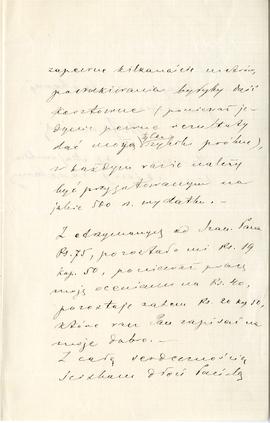 zapewne kilkanaście metrów,
poszukiwania byłyby dość
kosztowne (ponieważ je-
dynie pewne rezultaty
dać mogą tylko próbne),
w każdym razie należy
być przygotowanym na
jakie 500 r. wydatku.
Z otrzymanych od Szan. Pana
Rs. 75, pozostało mi Rs. 19
kop. 50, ponieważ pracę
moją oceniam na Rs. 40,
pozostaje zatem Rs. 20 kop.
które racz Pan zapisać na
moje dobro.
Z całą serdecznością
ściskam dłoń